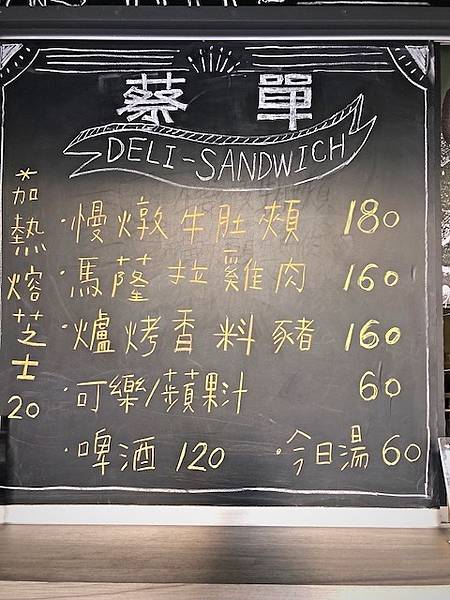 蔡單
DELI-SANDWICH
·慢燉牛肚頰 180
·馬薩拉雞肉 160
·爐烤香料豬 160
·可樂/蘋果汁 60
·啤酒 120 ·今日湯 60
茄熱熔芝士 20